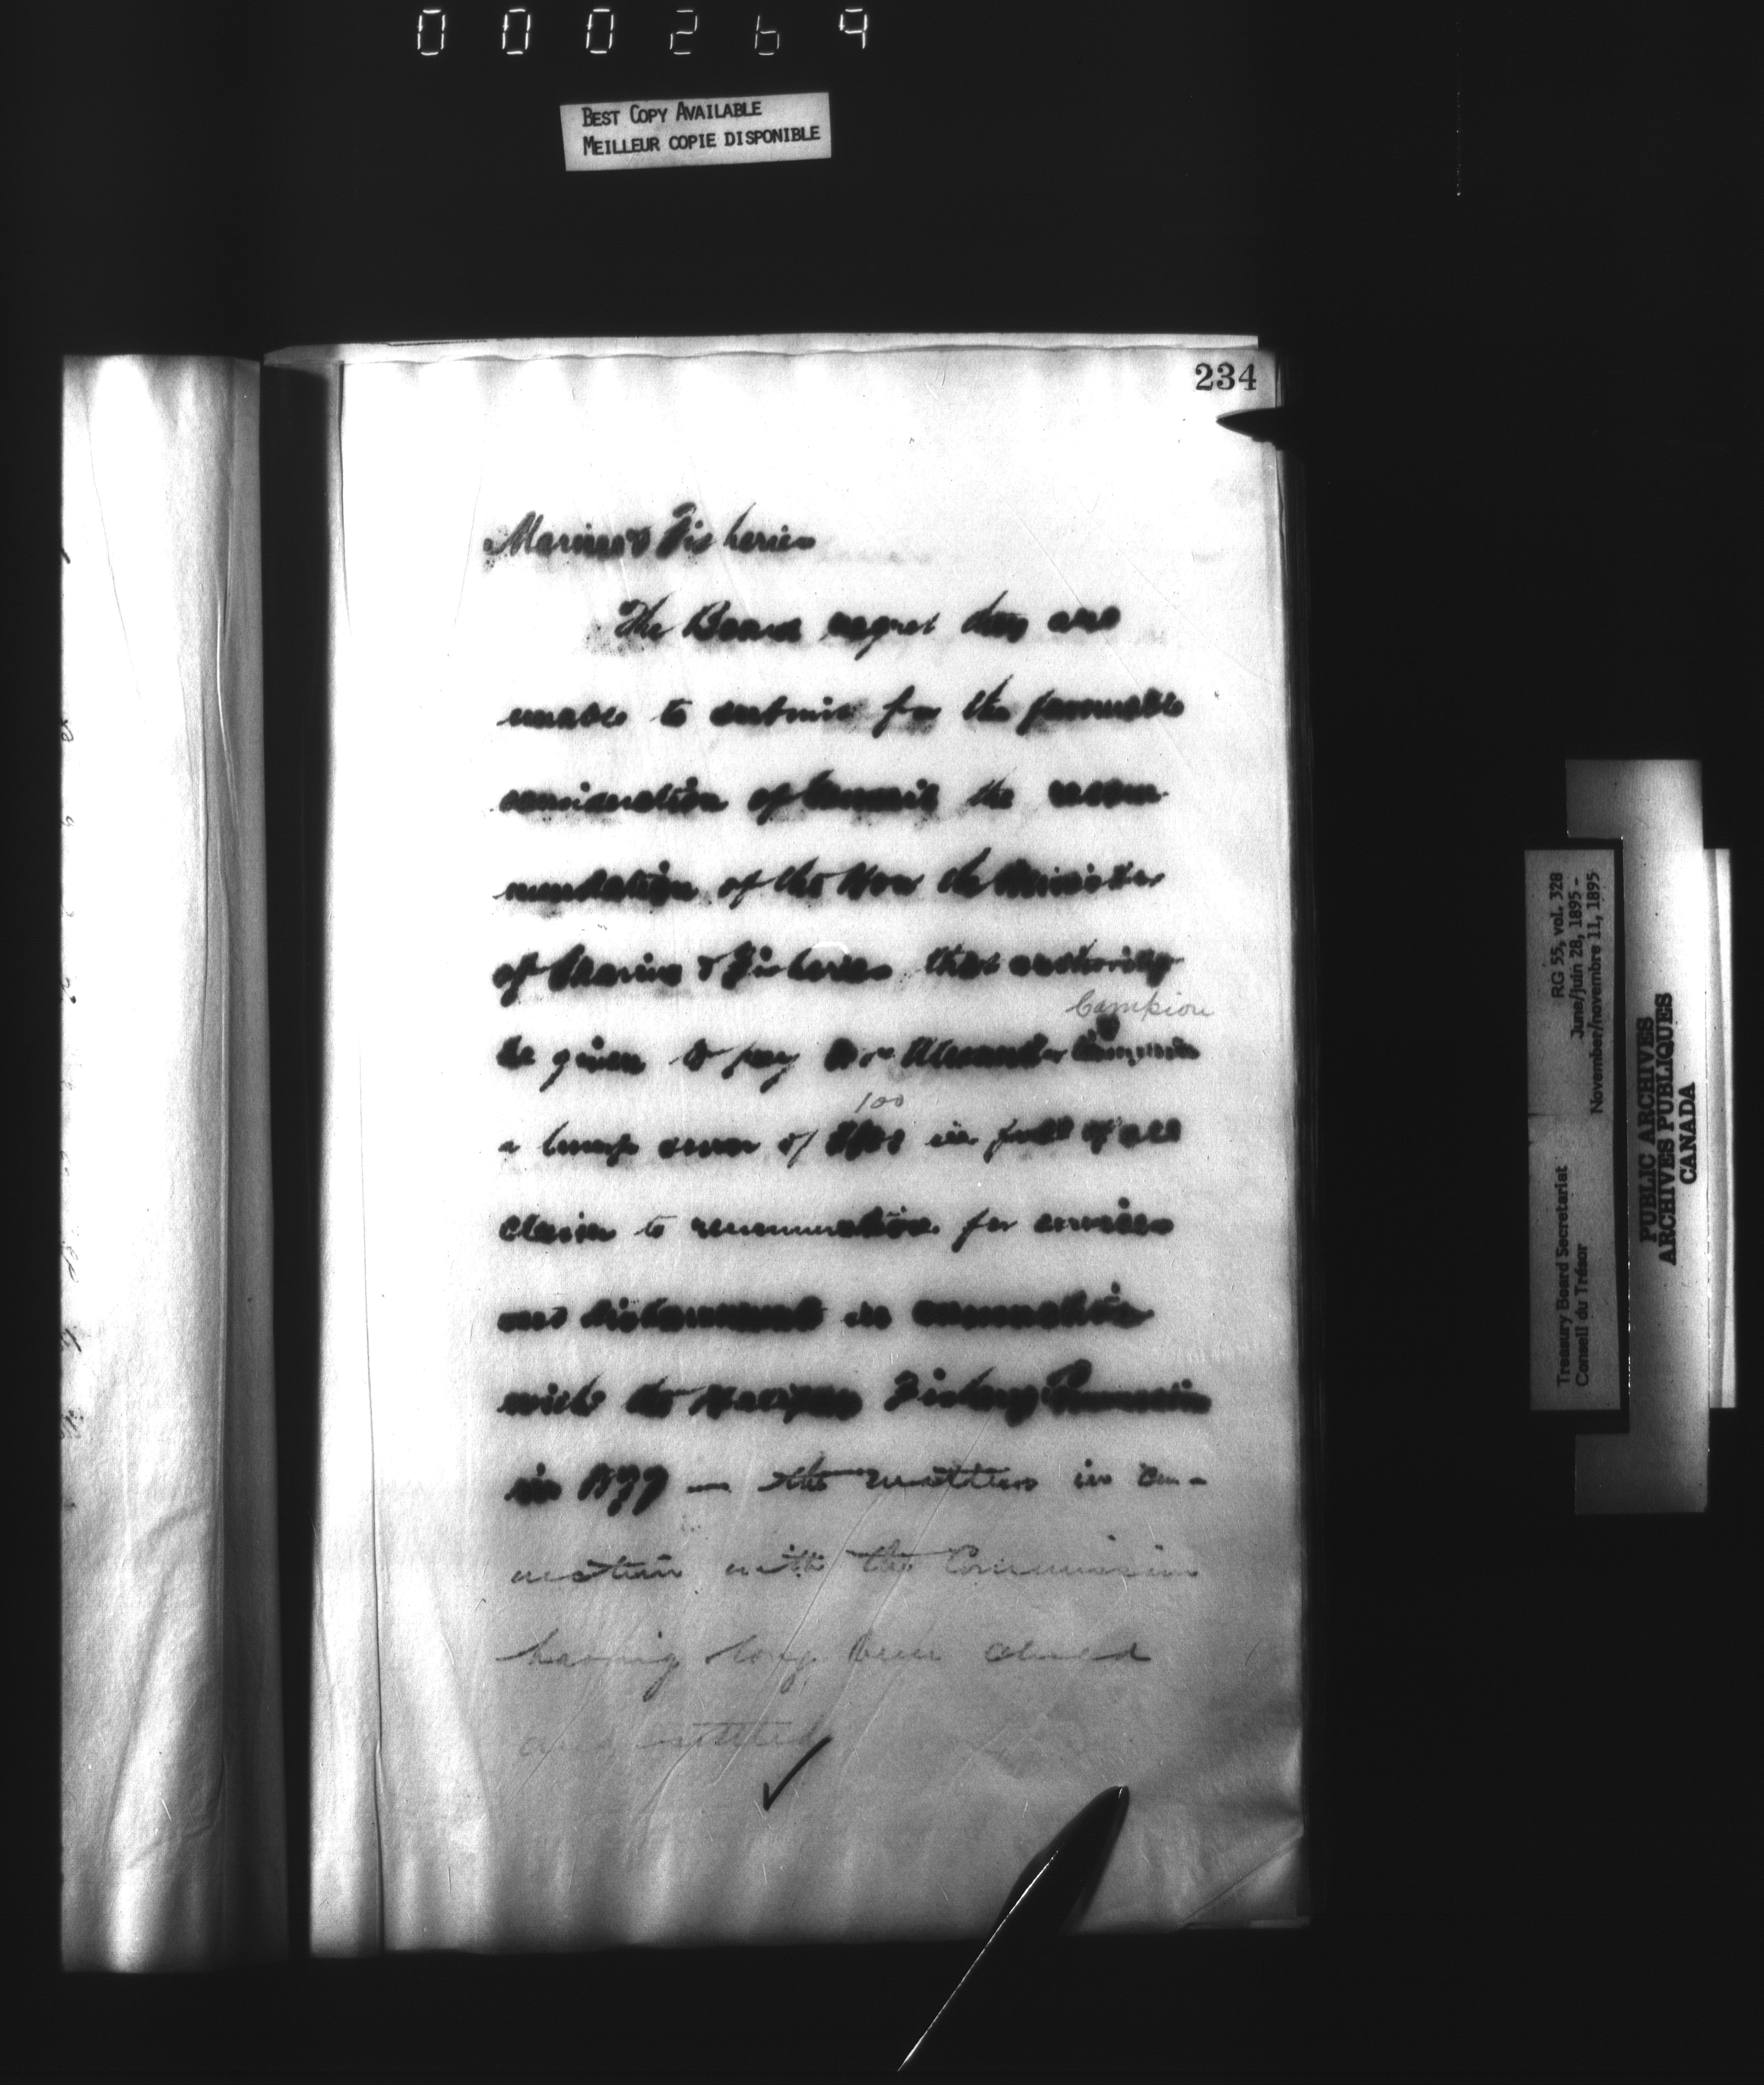 000269
BEST COPY AVAILABLE
MEILLEUR COPIE DISPONIBLE
234
Marine & Fisheries
The Board regret they are
unable to submit for the favourable
consideration of Council the recom
mendation of the Hon the Minister
of Marine & Fisheries that authority
Campion
be given to pay Mr Alexander Campion
100
a lump sum of $100 in full of all
claim to remuneration for services
and disbursements in connection
with the Halifax Fishery Commission
in 1877 — the matters in con-
nection with the Commission
having long been closed
and settled
RG 55, vol. 328
June/juin 28, 1895 -
November/novembre 11, 1895
Treasury Board Secretariat
Conseil du Trésor
PUBLIC ARCHIVES
ARCHIVES PUBLIQUES
CANADA